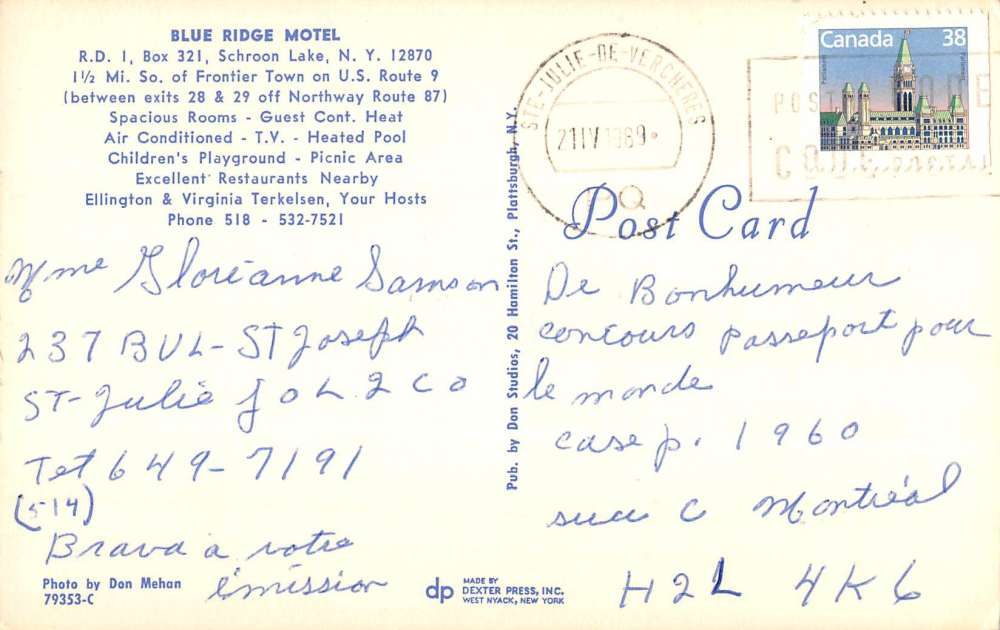 BLUE RIDGE MOTEL
R.D. 1, Box 321, Schroon Lake, N. Y. 12870
1½ Mi. So. of Frontier Town on U.S. Route 9
(between exits 28 & 29 off Northway Route 87)
Spacious Rooms - Guest Cont. Heat
Air Conditioned - T.V. - Heated Pool
Children's Playground - Picnic Area
Excellent Restaurants Nearby
Ellington & Virginia Terkelsen, Your Hosts
Phone 518 - 532-7521
Mme Gloréanne Samson
237 BUL-ST Joseph
ST-Julie J0L 2C0
Tet 649-7191
(514)
Brava a votre
émission
Photo by Don Mehan
79353-C
Pub. by Don Studios, 20 Hamilton St., Plattsburgh, N.Y.
dp MADE BY
DEXTER PRESS, INC.
WEST NYACK, NEW YORK
STE-JULIE-DE-VERCHERES
21 IV 1989
PQ
Canada 38
POST
CODE
Post Card
De Bonhumeur
concours passeport pour
le monde
case p. 1960
succ C Montréal
H2L 4K6